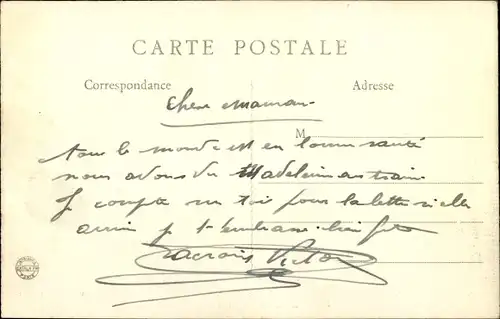 CARTE POSTALE
Correspondance
Adresse
Chère Maman
M
tout le monde est en bonne santé
nous avons du Madeleine
Je compte sur toi pour la lettre si elle
arrive je t'embrasse bien fort
Lacroix Victor